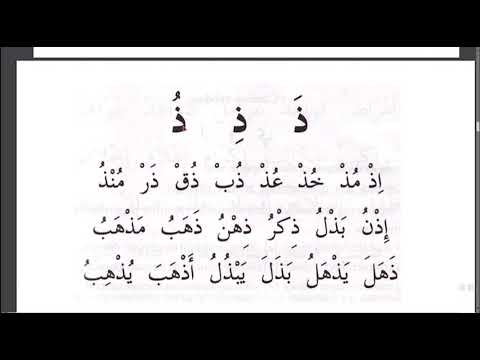 ذَ ذِ ذُ
اِذْ مُذْ خُذْ عُذْ ذُبْ ذُقْ ذَرْ مُنْذُ
إِذْنُ بَذْلُ ذِكْرُ ذِهْنُ ذَهَبُ مَذْهَبُ
ذَهَلَ يَذْهَلُ بَذَلَ يَبْذُلُ أَذْهَبَ يُذْهِبُ